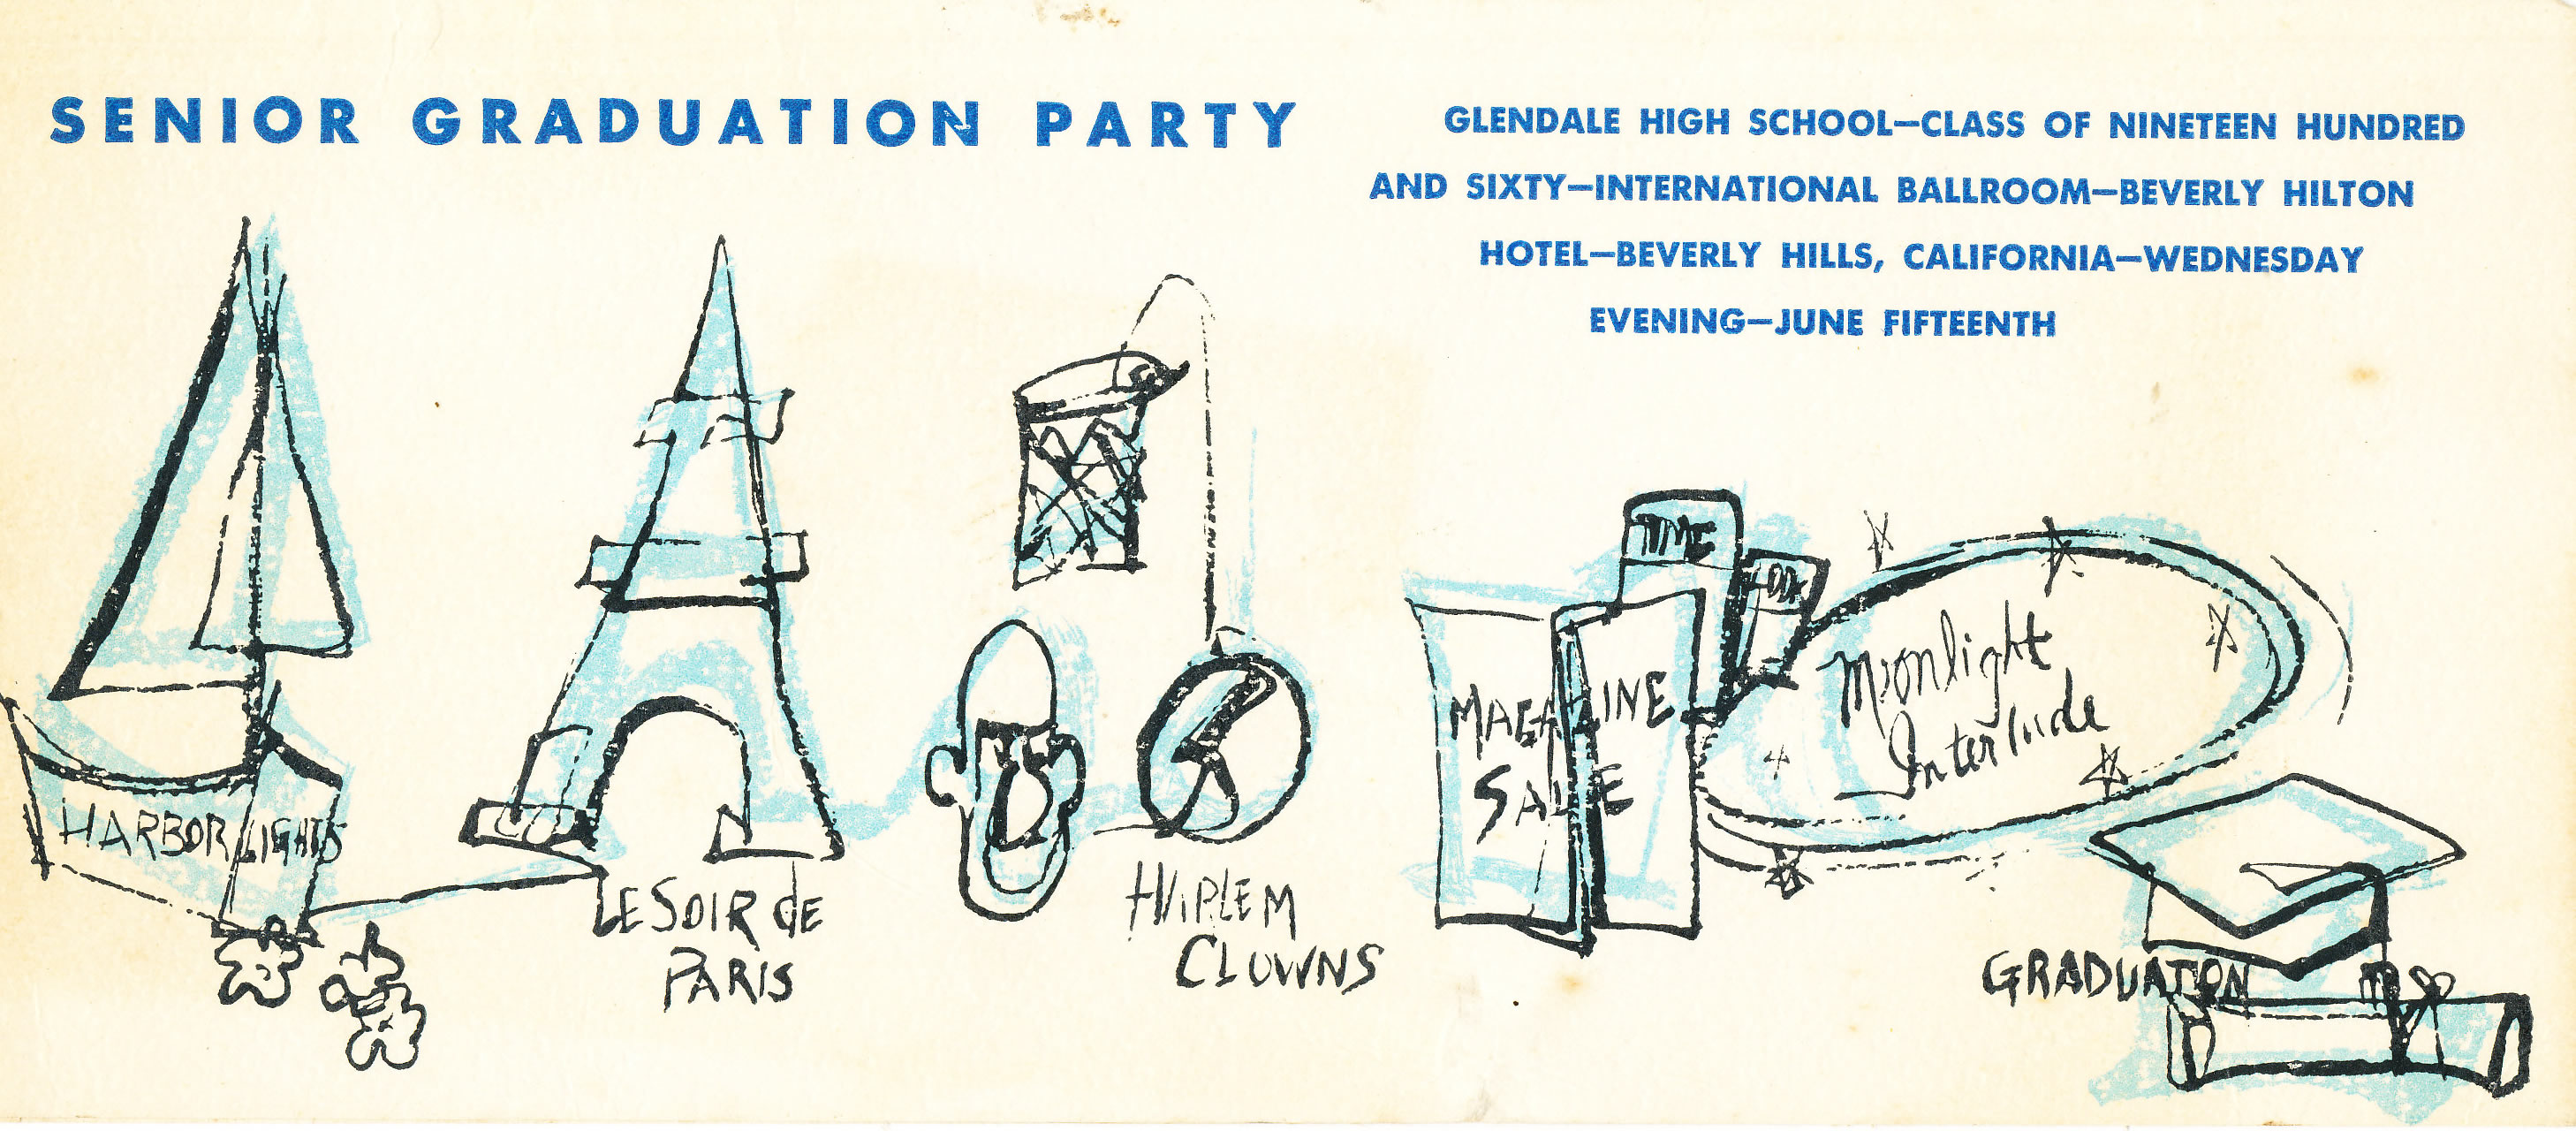 SENIOR GRADUATION PARTY
GLENDALE HIGH SCHOOL—CLASS OF NINETEEN HUNDRED
AND SIXTY—INTERNATIONAL BALLROOM—BEVERLY HILTON
HOTEL—BEVERLY HILLS, CALIFORNIA—WEDNESDAY
EVENING—JUNE FIFTEENTH
HARBOR LIGHTS
LE SOIR de
PARIS
HARLEM
CLOWNS
TIME
LOOK
MAGAZINE
SALE
Moonlight
Interlude
GRADUATION